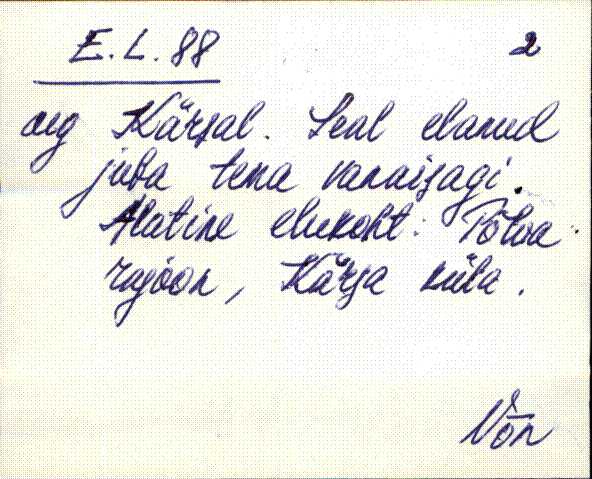 E. L. 88 2
aeg Kärsal. Seal elanud
juba tema vanaisagi.
Alatine elukoht: Põlva
rajoon, Kärsa küla.
Võn